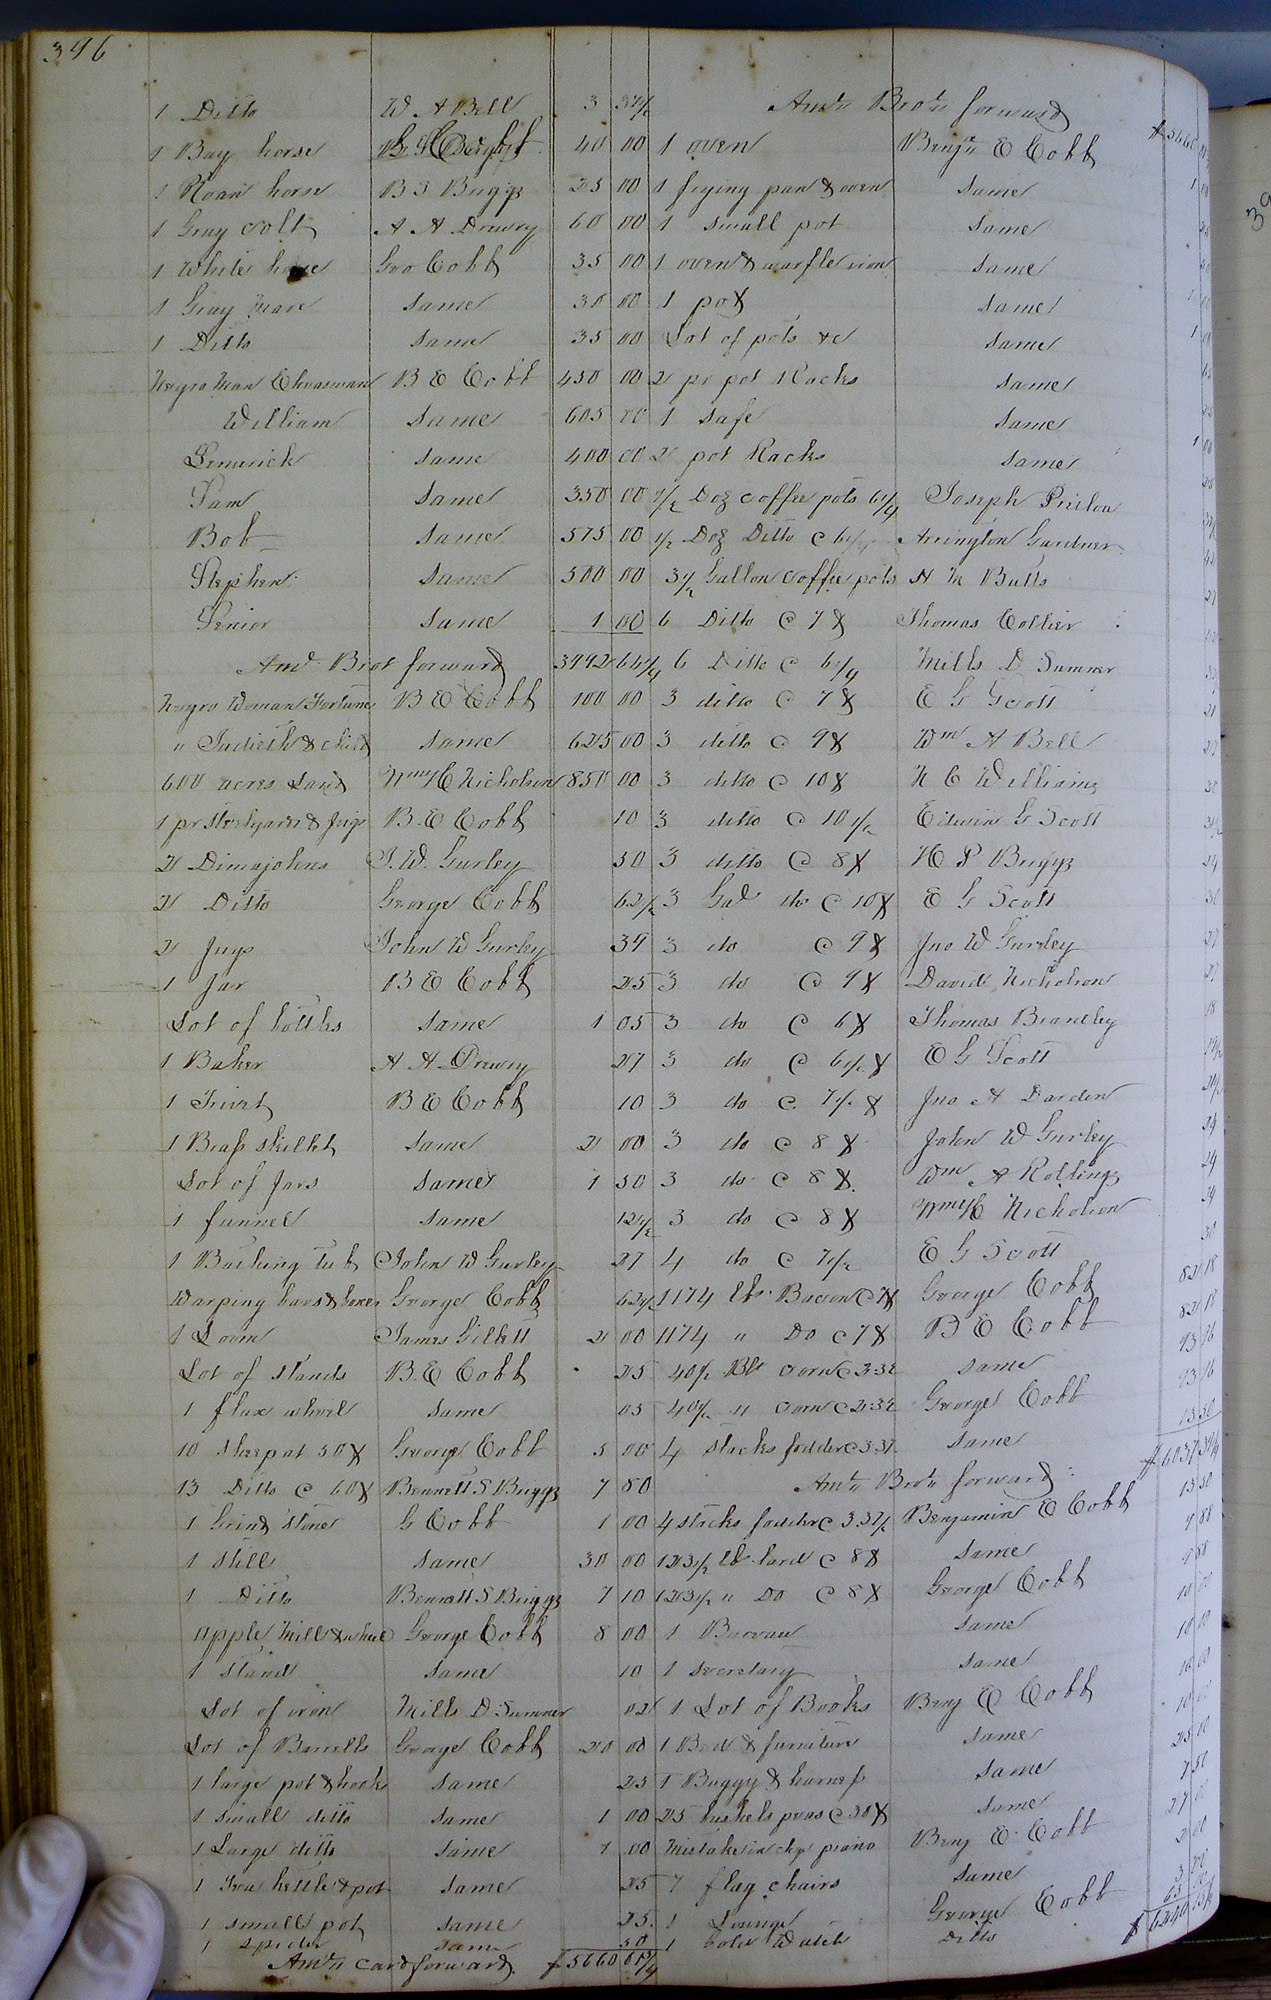 396
1 Ditto W A Bell 3 37 1/2
1 Bay horse 40 00
1 Roan horse B S Briggs 25 00
1 Gray colt A A Drewry 60 00
1 White horse Geo Cobb 35 00
1 Gray Mare same 30 00
1 Ditto same 35 00
Negro Man B E Cobb 450 00
William same 605 00
same 400 00
Sam same 350 00
Bob same 575 00
Stephen same 500 00
Senior same 1 00
Amt Brot forward 3992 64 1/4
Negro Woman Fortune B E Cobb 100 00
" Judieth & child same 625 00
600 acres Land Wm H Nicholson 850 00
1 pr Steelyards & Jugs B. E Cobb 10
2 Dimajohns J. W. Gurley 50
2 Ditto George Cobb 62 1/2
2 Jugs John W Gurley 39
1 Jar B E Cobb 25
Lot of bottles same 1 05
1 Baker A A Drewry 27
1 Trivet B E Cobb 10
1 Brass skillet same 2 00
Lot of Jars same 1 50
1 funnel same 12 1/2
1 tub John W Gurley 27
Warping bars & boxes George Cobb 62 1/2
1 Loom James Gillett 2 00
Lot of stands B. E Cobb 25
1 flax wheel same 05
10 Sheep at 50 ¢ George Cobb 5 00
13 Ditto @ 60 ¢ Bennett S Briggs 7 80
1 Grind Stone G Cobb 1 00
1 still same 30 00
1 Ditto Bennett S Briggs 7 10
Apple Mill & wheel George Cobb 8 00
1 stand same 10
Lot of iron Mills D Sumner 02
Lot of Barrells George Cobb 20 00
1 large pot & hooks same 25
1 small ditto same 1 00
1 Large ditto same 1 00
1 Tea kettle & pot same 25
1 small pot same 25
1 spider same 50
Amt card forward $5660 61 1/4
Amt Brot forward $5660
1 oven Benjn E Cobb 1
1 frying pan & oven same
1 small pot same
1 oven & warfle iron same
1 pot same
Lot of pots &c same
2 pr pot Racks same
1 safe same
2 pot Racks same
1/2 Doz coffee pots 6 1/4 Joseph
1/2 Doz Ditto @ 6 1/4 Arrington Gardner
3 1/2 Gallon coffee pots A M Butts
6 Ditto @ 7 ¢ Thomas Collier
6 Ditto @ 6 1/4 Mills D Sumner
3 ditto @ 7 ¢ E G Scott 21
3 ditto @ 9 ¢ Wm A Bell 27
3 ditto @ 10 ¢ N C Williams 30
3 ditto @ 10 1/2 Edwin G Scott 31 1/2
3 ditto @ 8 ¢ H P Briggs 24
3 Gal do @ 10 ¢ E G Scott 30
3 do @ 9 ¢ Jno W Gurley 27
3 do @ 9 ¢ David Nicholson 27
3 do @ 6 ¢ Thomas Brantley 18
3 do @ 6 1/2 ¢ E G Scott 19 1/2
3 do @ 7 1/2 ¢ Jno A Darden
3 do @ 8 ¢ John W Gurley 24
3 do @ 8 ¢ Wm A Rollings 24
3 do @ 8 ¢ Wm H Nicholson 24
4 do @ 7 1/2 E G Scott 30
1174 lbs Bacon @ 7 ¢ George Cobb 82 18
1174 " Do @ 7 ¢ B E Cobb 82 18
40 1/2 Bbl Corn @ 2.32 same 93 96
40 1/2 " Corn @ 2.32 George Cobb 93 96
4 stacks fodder @ 3.37 same 13 50
$6037
Amt Brot forward
4 stacks fodder @ 3.37 1/2 Benjamin E Cobb 13 50
123 1/2 lb lard @ 8 ¢ same 9 88
123 1/2 " Do @ 8 ¢ George Cobb 9 88
1 Bureau same 10 00
1 secretary same 10 00
1 Lot of Books Benj E Cobb 10 00
1 Bed & furniture same
1 Buggy & harness same
25 bushels peas @ 30 ¢ same 7 50
Mistake in chge piano Benj E. Cobb 27 00
7 flag chairs same 2 00
1 Lounge George Cobb
1 Gold Watch Ditto